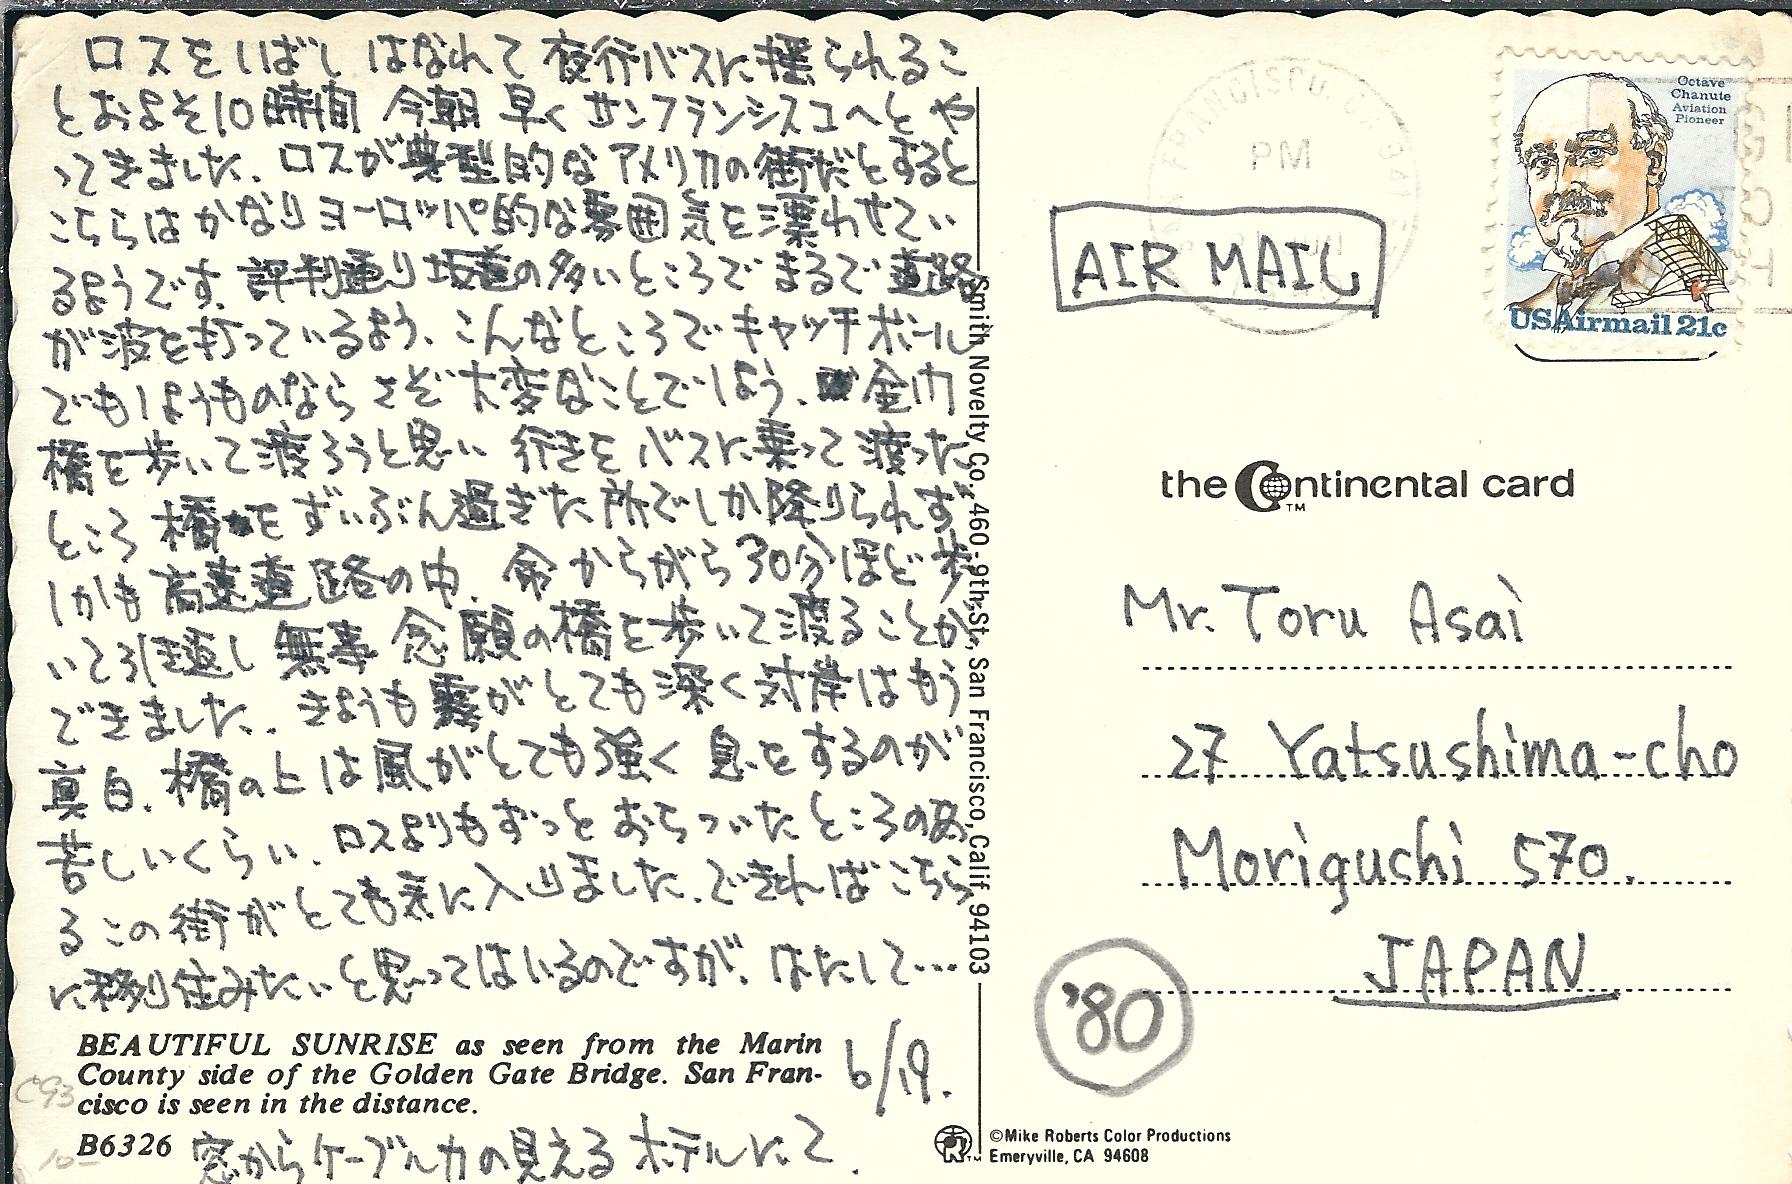 ロスをしばし はなれて 夜行バスに揺られるこ
とおよそ10時間 今朝 早く サンフランシスコへとや
ってきました. ロスが典型的な アメリカの街だとすると
こちらは かなりヨーロッパ的な雰囲気を漂わせてい
るようです. 評判通り坂道の多いところで まるで 道路
が波を打っているよう. こんなところで キャッチボール
でもしようものなら さぞ 大変なことでしょう. 金門
橋を歩いて渡ろうと思い 行きを バスに乗って 渡った
ところ 橋を ずいぶん過ぎた所でしか降りられず
しかも 高速道路の中. 命 からがら 30分ほど 歩
いて引き返し 無事 念願の橋を歩いて渡ることが
できました. きょうも霧がとても深く 対岸はもう
真白. 橋の上は風がとても強く 息をするのが
苦しいくらい. ロスよりもずっと おちついた ところのあ
る この街が とても気に入りました. できれば こちら
に移り住みたいと思ってはいるのですが. はたして...
BEAUTIFUL SUNRISE as seen from the Marin
County side of the Golden Gate Bridge. San Fran-
cisco is seen in the distance.
6/19.
B6326
窓からケーブルカの見える ホテルにて.
C93
10-
Smith Novelty Co., 460-9th St., San Francisco, Calif. 94103
SAN FRANCISCO, CA 941
PM
Octave
Chanute
Aviation
Pioneer
USAirmail 21c
AIR MAIL
the Continental card
TM
Mr. Toru Asai
27 Yatsushima-cho
Moriguchi 570.
JAPAN
'80
©Mike Roberts Color Productions
Emeryville, CA 94608